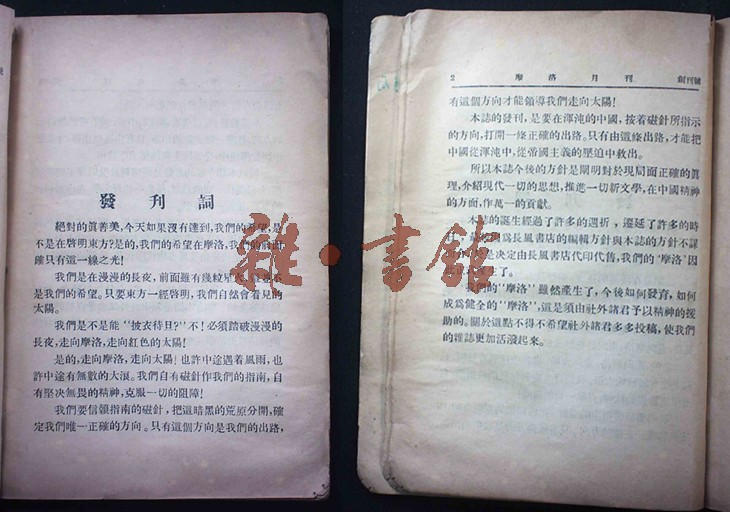 發刊詞
絕對的眞善美，今天如果沒有達到，我們的希望，是
不是在啓明東方？是的，我們的希望在摩洛，我們的前面
雖只有這一線之光！
我們是在漫漫的長夜，前面雖有幾粒星火，
是我們的希望。只要東方一經啓明，我們自然會看見的
太陽。
我們是不是能“披衣待旦？”不！必須踏破漫漫的
長夜，走向摩洛，走向紅色的太陽！
是的，走向摩洛，走向太陽！也許中途遇着風雨，也
許中途有無數的大浪。我們自有磁針作我們的指南，自
有堅决無畏的精神，克服一切的阻障！
我們要信賴指南的磁針，把這暗黑的荒原分開，確
定我們唯一正確的方向。只有這個方向是我們的出路，
2 摩洛月刊 創刊號
有這個方向才能領導我們走向太陽！
本誌的發刊，是要在渾沌的中國，按着磁針所指示
的方向，打開一條正確的出路。只有由這條出路，才能把
中國從渾沌中，從帝國主義的壓迫中救出。
所以本誌今後的方針是闡明對於現局面正確的眞
理，介紹現代一切的思想，推進一切新文學，在中國精神
的方面，作萬一的貢獻。
本誌的誕生經過了許多的週折，遷延了許多的時
爲長風書店的編輯方針與本誌的方針不謀
是决定由長風書店代印代售，我們的‘摩洛’因
生了。
我們的“摩洛”雖然產生了，今後如何發育，如何
成爲健全的“摩洛”，這是須由社外諸君予以精神的援
助的。關於這點不得不希望社外諸君多多投稿，使我們
的雜誌更加活潑起來。
雜·書館